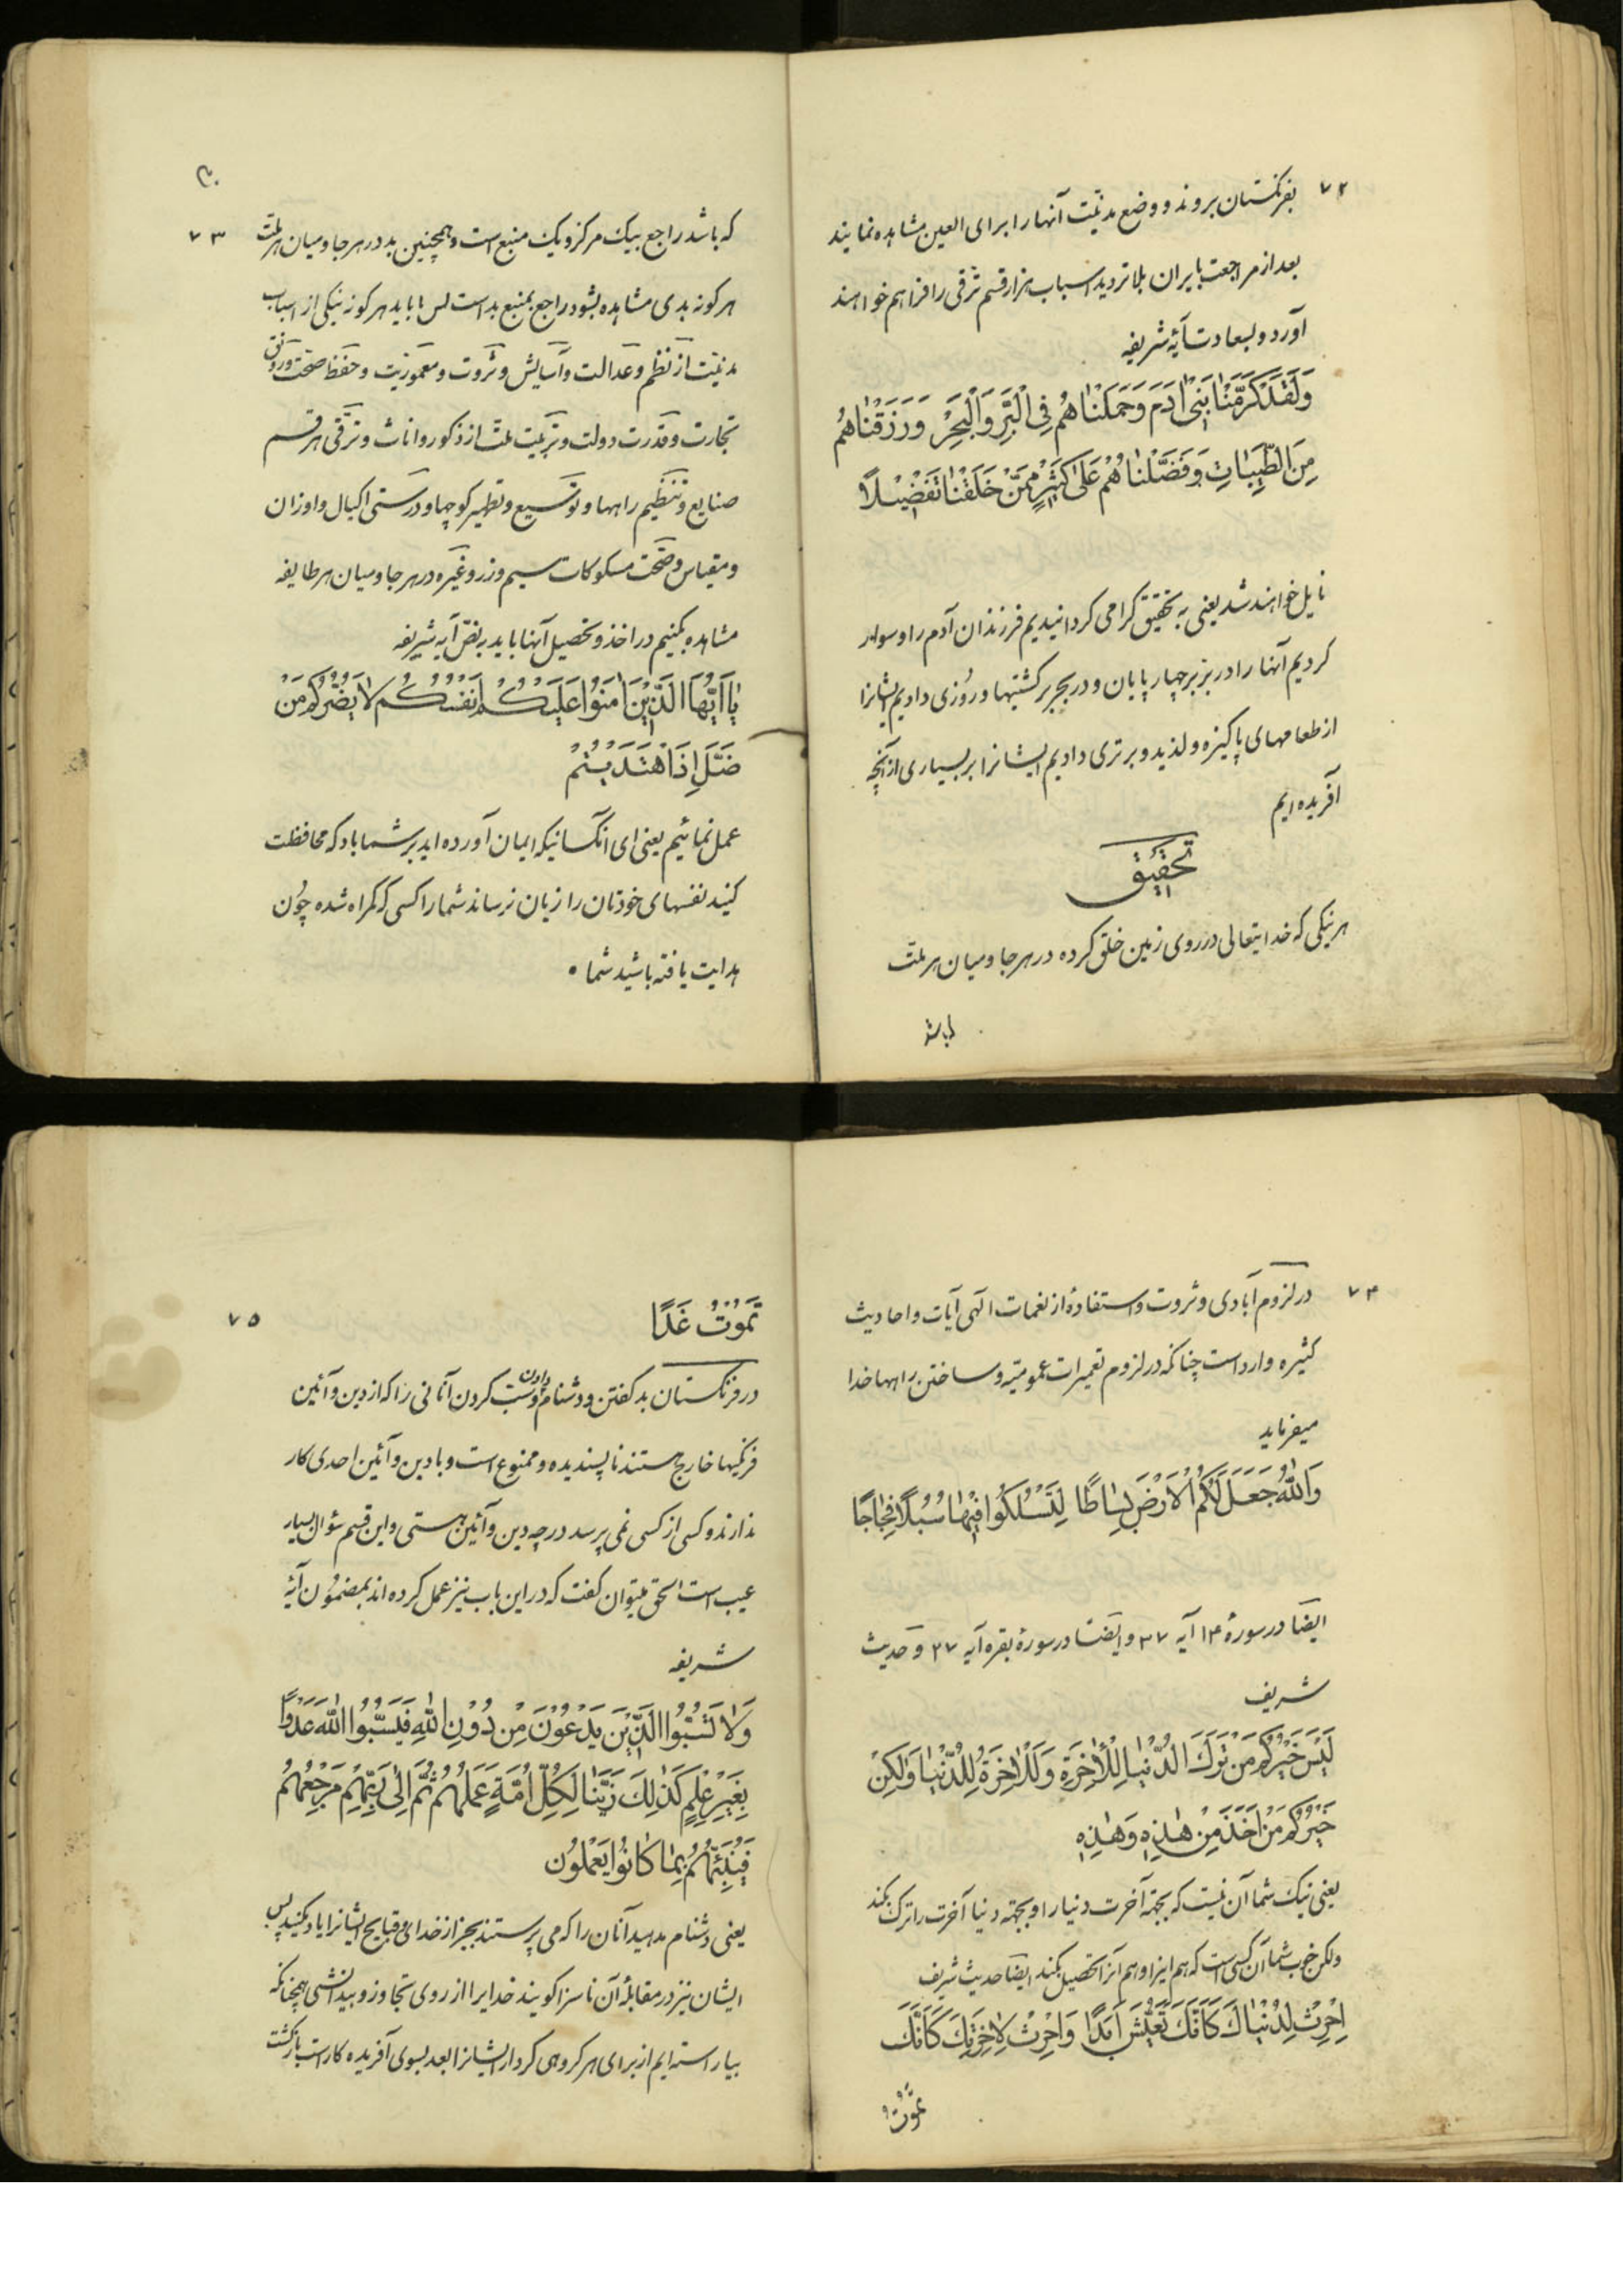 ۷۲
بفرنگستان بروند و وضع مدنیّت آنها را برای العین مشاهده نمایند
بعد از مراجعت بایران بلا تردید اسباب هزار قسم ترقی را فراهم خواهند
آورد و بسعادت آیهٔ شریفه
وَلَقَدْ كَرَّمْنٰا بَنِىۤ اٰدَمَ وَحَمَلْنٰاهُمْ فِى الْبَرِّ وَالْبَحْرِ وَرَزَقْنٰاهُمْ
مِنَ الطَّيِّبٰاتِ وَفَضَّلْنٰاهُمْ عَلٰى كَثِيْرٍ مِمَّنْ خَلَقْنٰا تَفْضِيْلاً
نایل خواهند شد یعنی به تحقیق گرامی گردانیدیم فرزندان آدم را و سوار
کردیم آنها را در برّ بر چهار پایان و در بحر بر کشتیها و روُزی دادیم ایشانرا
از طعامهای پاکیزه و لذیذ و برتری دادیم ایشانرا بر بسیاری از آنچه
آفریده ایم
تحقیق
هر نیکی که خدایتعالی در روی زمین خلق کرده در هر جا و میان هر ملت
که باشد
۷۳
که باشد راجع بیک مرکز و یک منبع است و همچنین بد در هر جا و میان هر ملت
هر گونه بدی مشاهده بشود راجع بمنبع بد است پس ما باید هر گونه نیکی از اسباب
مدنیّت از نظم و عدالت و آسایش و ثروت و معموریّت و حفظ صحّت و رونق
تجارت و قدرت دولت و تربیت ملّت از ذکور و اناث و ترقی هر قسم
صنایع و تنظیم راهها و توسیع و تطهیر کوچها و درستی اکیال و اوزان
و مقیاس و صحّت مسکوکات سیم و زر و غیره در هر جا و میان هر طایفه
مشاهده بکنیم در اخذ و تحصیل آنها باید به نصّ آیه شریفه
يٰاۤ اَيُّهَا الَّذِيْنَ اٰمَنُوْا عَلَيْكُمْ اَنْفُسَكُمْ لاٰ يَضُرُّكُمْ مَنْ
ضَلَّ اِذَا اهْتَدَيْتُمْ
عمل نمائیم یعنی ای آنکسانیکه ایمان آورده اید بر شما باد که محافظت
کنید نفسهای خودتان را زیان نرساند شما را کسی که گمراه شده چوُن
هدایت یافته باشید شما ٥
۷۴
در لزوم آبادی و ثروت و استفادهٔ از نعمات الٓهی آیات و احادیث
کثیره وارد است چنانکه در لزوم تعمیرات عمومیّه و ساختن راهها خدا
میفرماید
وَاللّٰهُ جَعَلَ لَكُمُ الْاَرْضَ بِسٰاطًا لِتَسْلُكُوا مِنْهٰا سُبُلًا فِجٰاجًا
ایضًا در سورهٔ ۱۴ آیه ۳۷ و ایضًا در سورهٔ بقره آیه ۲۷ و حدیث
شریف
لَيْسَ خَيْرُكُمْ مَنْ تَرَكَ الدُّنْيٰا لِلْاٰخِرَةِ وَلَا الْاٰخِرَةُ لِلدُّنْيٰا وَلٰكِنْ
خَيْرُكُمْ مَنْ اَخَذَ مِنْ هٰذِهِ وَهٰذِهِ
یعنی نیک شما آن نیست که بجهة آخرت دنیا را و بجهة دنیا آخرت را ترک بکند
ولکن خوب شما آن کسی است که هم اینرا و هم آنرا تحصیل بکند ایضًا حدیث شریف
اِحْرِثْ لِدُنْيٰاكَ كَاَنَّكَ تَعِيْشُ اَبَدًا وَاحْرِثْ لِاٰخِرَتِكَ كَاَنَّكَ
تَموُتُ
۷۵
تَموُتُ غَدًا
در فرنگستان بد گفتن و دشنام دادن و سَبّ کردن آنانی را که از دین و آئین
فرنگیها خارج هستند ناپسندیده و ممنوع است و با دین و آئین احدی کار
ندارند و کسی از کسی نمی پرسد در چه دین و آئین هستی و این قسم سؤال بسیار
عیب است الحق میتوان گفت که در این باب نیز عمل کرده اند بمضموُن آیهٔ
شریفه
وَلاٰ تَسُبُّوا الَّذِيْنَ يَدْعُوْنَ مِنْ دُوْنِ اللّٰهِ فَيَسُبُّوا اللّٰهَ عَدْوًا
بِغَيْرِ عِلْمٍ كَذٰلِكَ زَيَّنّٰا لِكُلِّ اُمَّةٍ عَمَلَهُمْ ثُمَّ اِلٰى رَبِّهِمْ مَرْجِعُهُمْ
فَيُنَبِّئُهُمْ بِمٰا كٰانُوا يَعْمَلُون
یعنی دشنام مدهید آنان را که می پرستند بجز از خدای و قبایح ایشانرا یاد مکنید پس
ایشان نیز در مقابلهٔ آن ناسزا گویند خدایرا از روی تجاوز و بیدانشی همچنانکه
بیاراسته ایم از برای هر گروهی کردار ایشانرا بعد بسوی آفریده کار است بازگشت